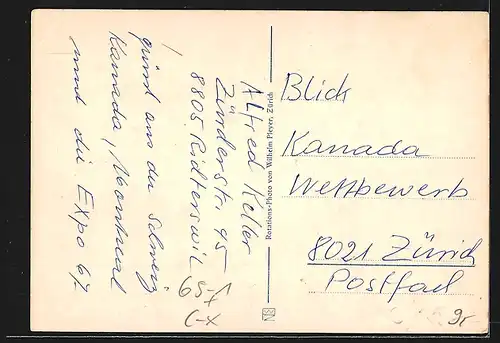 Alfred Keller
Zünderstr. 45
8805 Ridterswil
grüsst aus der Schweiz
Kanada, Montreal
und die Expo 67
Rotations-Photo von Wilhelm Pleyer, Zürich
Blick
Kanada
Wettbewerb
8021 Zürich
Postfach